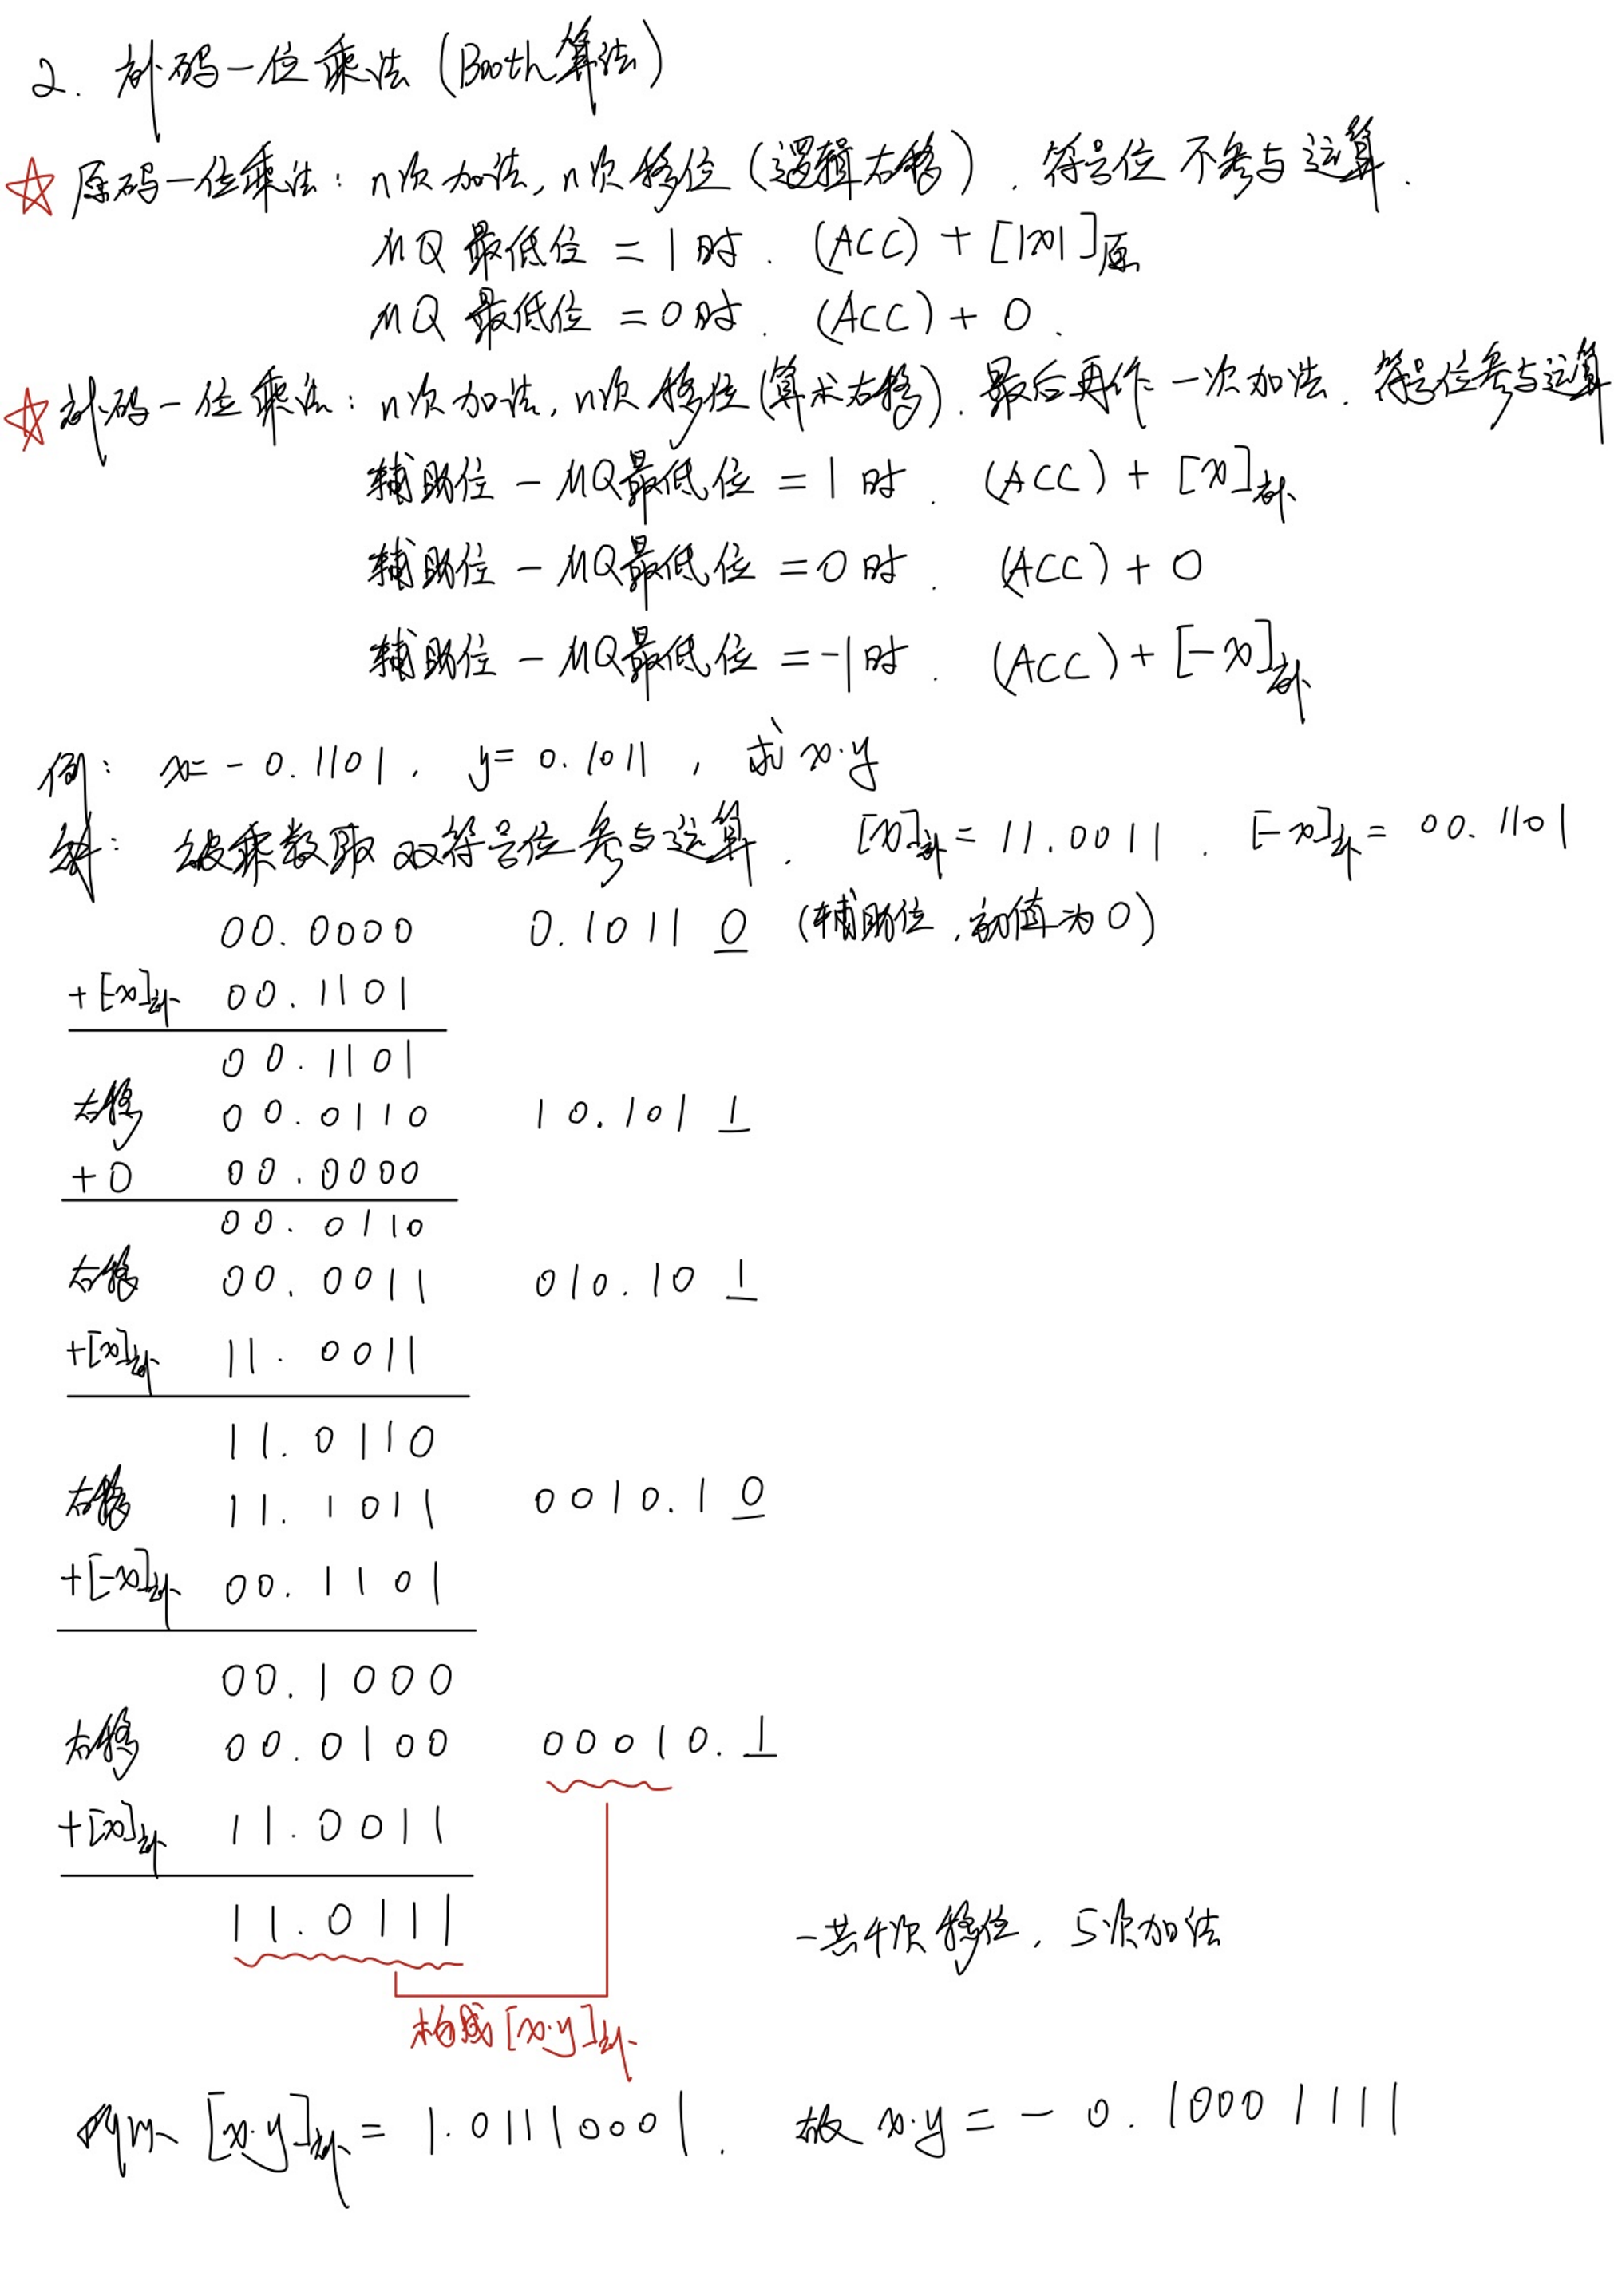 2. 补码一位乘法 (Booth算法)
原码一位乘法: n次加法, n次移位 (逻辑右移). 符号位不参与运算.
MQ最低位 = 1时. (ACC) + [|x|]原
MQ最低位 = 0时. (ACC) + 0.
补码一位乘法: n次加法, n次移位 (算术右移). 最后再作一次加法. 符号位参与运算
辅助位 - MQ最低位 = 1时. (ACC) + [x]补
辅助位 - MQ最低位 = 0时. (ACC) + 0
辅助位 - MQ最低位 = -1时. (ACC) + [-x]补
例: x = -0.1101, y = 0.1011, 求x·y
解: 被乘数取双符号位参与运算. [x]补 = 11.0011. [-x]补 = 00.1101
00.0000 0.1011 0 (辅助位, 初值为0)
+[-x]补 00.1101
00.1101
右移 00.0110 10.101 1
+0 00.0000
00.0110
右移 00.0011 010.10 1
+[x]补 11.0011
11.0110
右移 11.1011 0010.1 0
+[-x]补 00.1101
00.1000
右移 00.0100 00010. 1
+[x]补 11.0011
11.0111
一共4次移位, 5次加法
构成[x·y]补
所以 [x·y]补 = 1.01110001. 故 x·y = -0.10001111